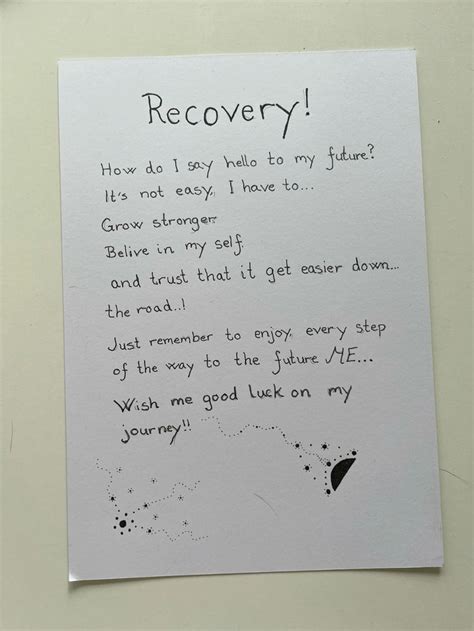 Recovery!
How do I say hello to my future?
It's not easy, I have to...
Grow stronger.
Belive in my self.
and trust that it get easier down...
the road..!
Just remember to enjoy, every step
of the way to the future ME...
Wish me good luck on my
journey!!